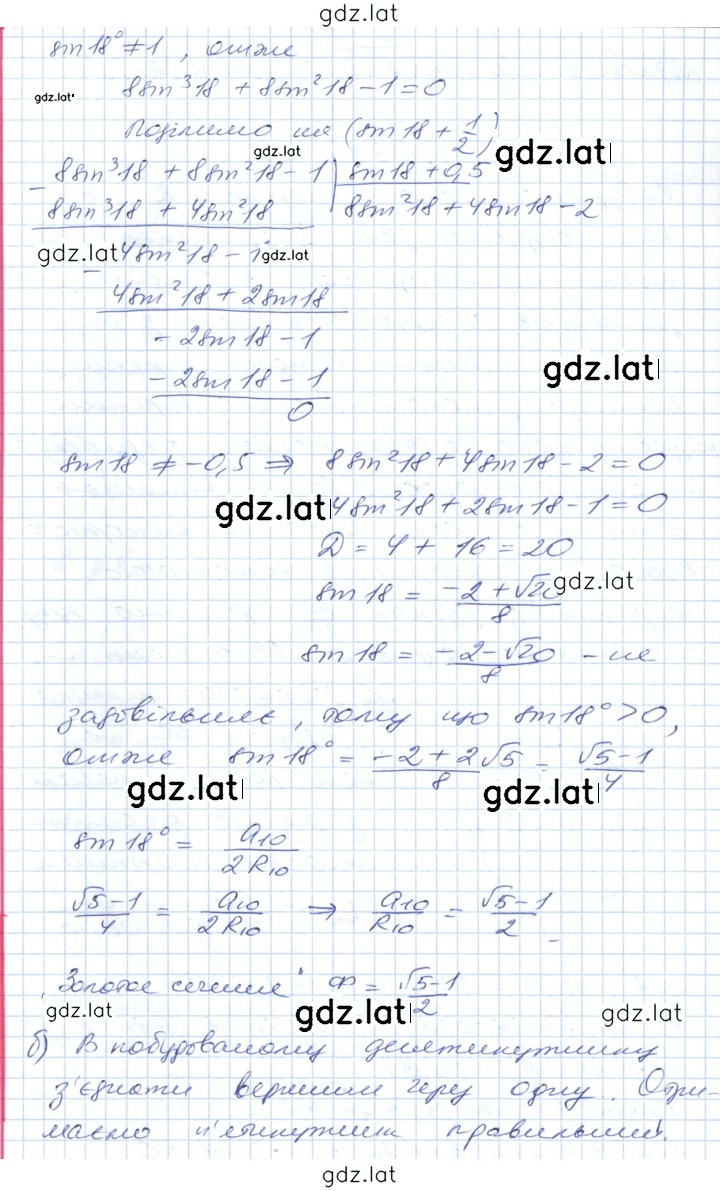 gdz.lat
sin 18° ≠ 1 , отже
8sin³18 + 8sin²18 − 1 = 0
gdz.lat
Поділимо на (sin 18 + 1/2)
gdz.lat
gdz.lat
− 8sin³18 + 8sin²18 − 1 | sin 18 + 0,5
8sin³18 + 4sin²18 | 8sin²18 + 4sin 18 − 2
gdz.lat
− 4sin²18 − 1
gdz.lat
4sin²18 + 2sin 18
− 2sin 18 − 1
− 2sin 18 − 1
gdz.lat
0
sin 18 ≠ −0,5 ⇒ 8sin²18 + 4sin 18 − 2 = 0
gdz.lat
4sin²18 + 2sin 18 − 1 = 0
D = 4 + 16 = 20
sin 18 = (−2 + √20)/8
gdz.lat
sin 18 = (−2 − √20)/8 − не
задовільняє, тому що sin 18° > 0,
отже sin 18° = (−2 + 2√5)/8 = (√5 − 1)/4
gdz.lat
gdz.lat
sin 18° = a₁₀/2R₁₀
(√5 − 1)/4 = a₁₀/2R₁₀ ⇒ a₁₀/R₁₀ = (√5 − 1)/2 −
„Золотое сечение" Ф = (√5 − 1)/2
gdz.lat
gdz.lat
gdz.lat
б) В побудованому десятикутнику
з'єднати вершини через одну. Отри-
маємо п'ятикутник правильний.
gdz.lat